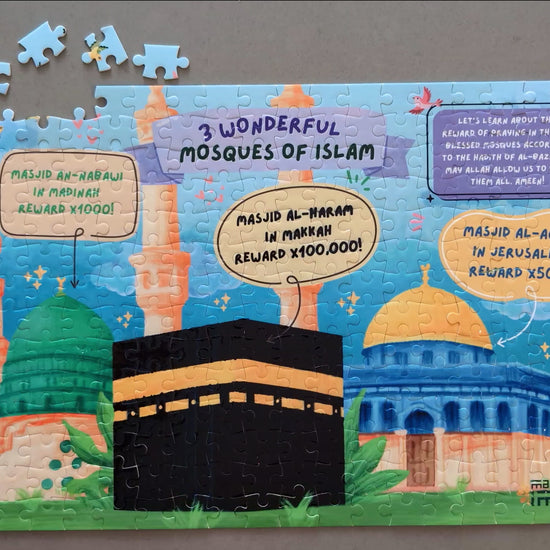 3 WONDERFUL
MOSQUES OF ISLAM
LET'S LEARN ABOUT TH
REWARD OF PRAYING IN TH
BLESSED MOSQUES ACCOR
TO THE HADITH OF AL-BAZ
MAY ALLAH ALLOW US TO
THEM ALL, AMEEN!
MASJID AN-NABAWI
IN MADINAH
REWARD X1000!
MASJID AL-HARAM
IN MAKKAH
REWARD X100,000!
MASJID AL-A
IN JERUSAL
REWARD X50